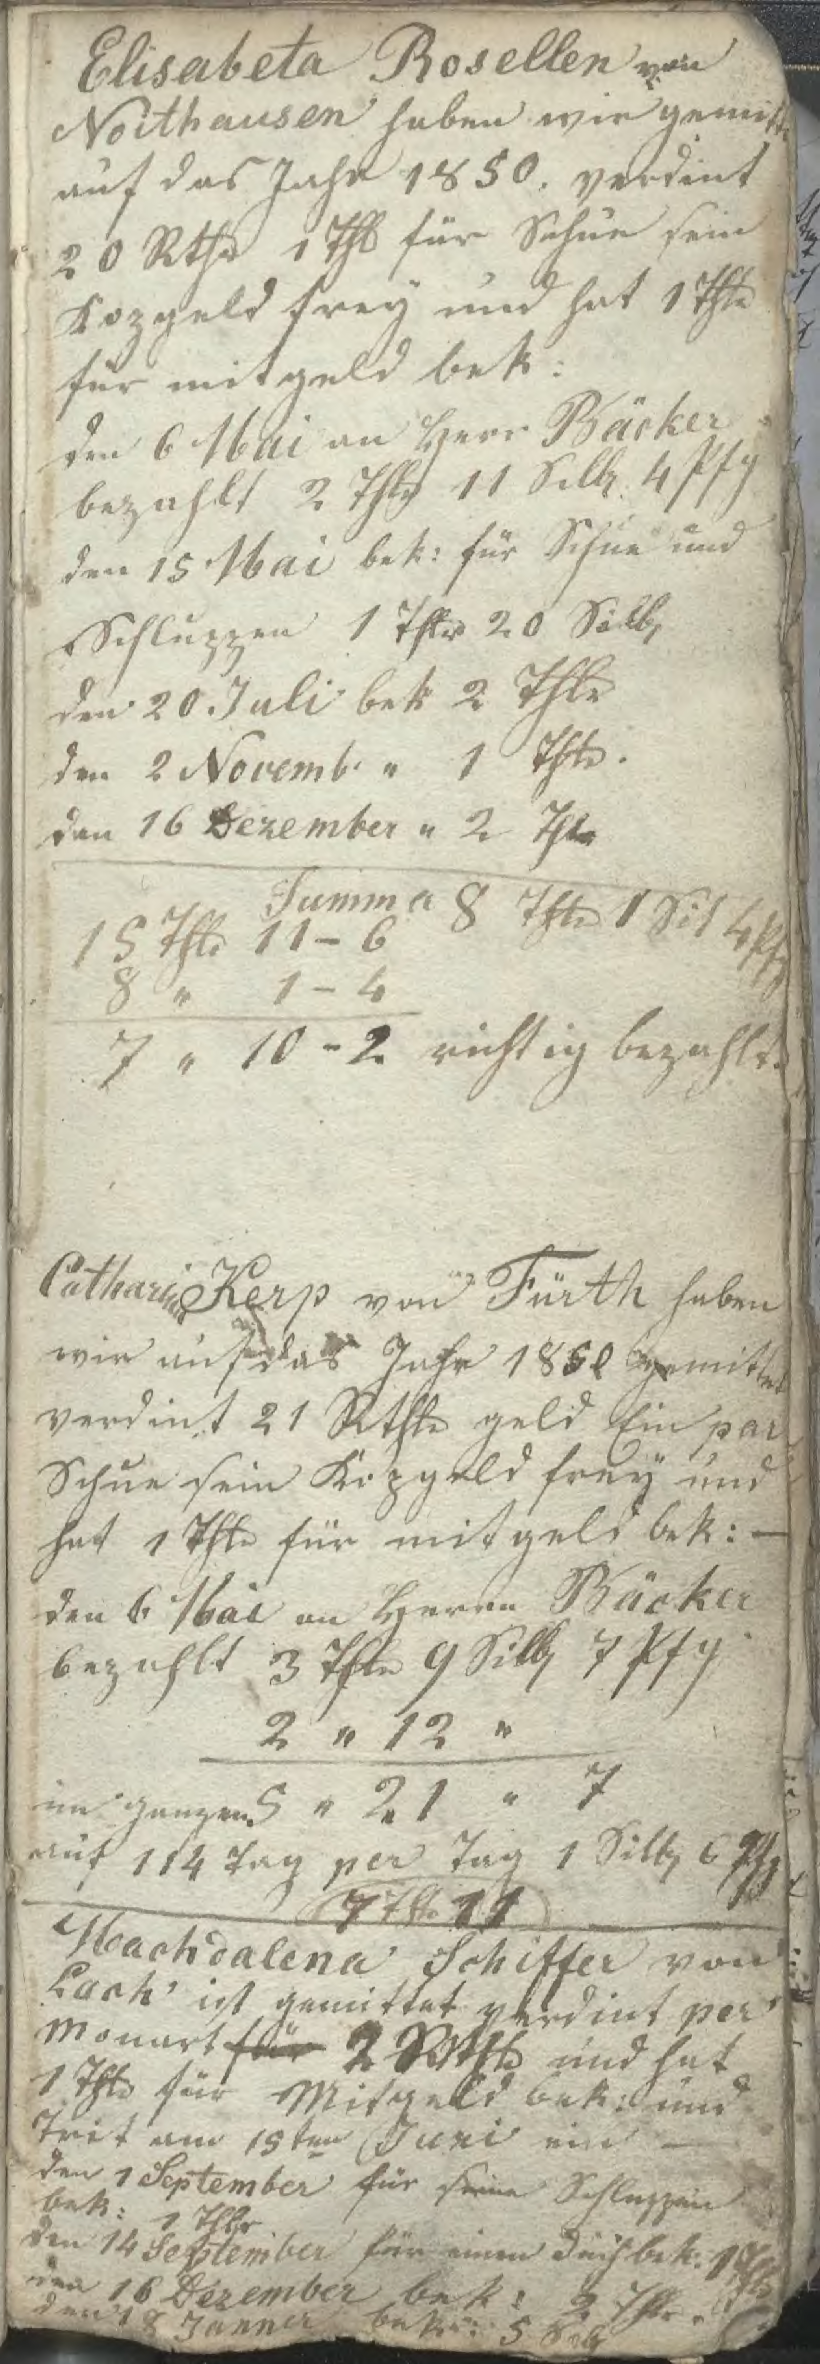 Elisabeta Rosellen von
Noithausen haben wir gemitt
auf das Jahr 1850. verdint
20 Rthr 1 Thl für Schue sein
Kopgeld frey und hat 1 Thlr
für mitgeld bek:
den 6 Mai an Herr Bäcker
bezahlt 2 Thlr 11 Silbg 4 Pfg
den 15 Mai bek: für Schue und
Schluppen 1 Thlr 20 Silbg
den 20 Juli bek 2 Thlr
den 2 Novemb. " 1 Thlr.
den 16 Dezember " 2 Thlr
Summa 8 Thlr 1 Sil 4 Pfg
15 Thlr 11 - 6
8 " 1 - 4
7 " 10 - 2 richtig bezahlt.
Catharina Kerp von Fürth haben
wir auf das Jahr 1850 gemittet
verdint 21 Rthlr geld Ein par
Schue sein Kopgeld frey und
hat 1 Thlr für mitgeld bek: —
den 6 Mai an Herrn Bäcker
bezahlt 3 Thlr 9 Silbg 7 Pfg
2 " 12 "
im ganzen 5 " 21 " 7
auf 114 Tag per Tag 1 Silbg 6 Pfg
7 Thlr 11
Machdalena Schiffer von
Lach ist gemittet verdint per
Monart für 2 Rthlr und hat
1 Thlr für Mitgeld bek: und
Trit am 15ten Juni ein —
den 1 September für seine Schluppen
bek: 1 Thlr
den 14 September für einen duch bek: 1 Thlr
den 16 Dezember bek: 2 Thlr
den 18 Janner bek: 5 Silbg